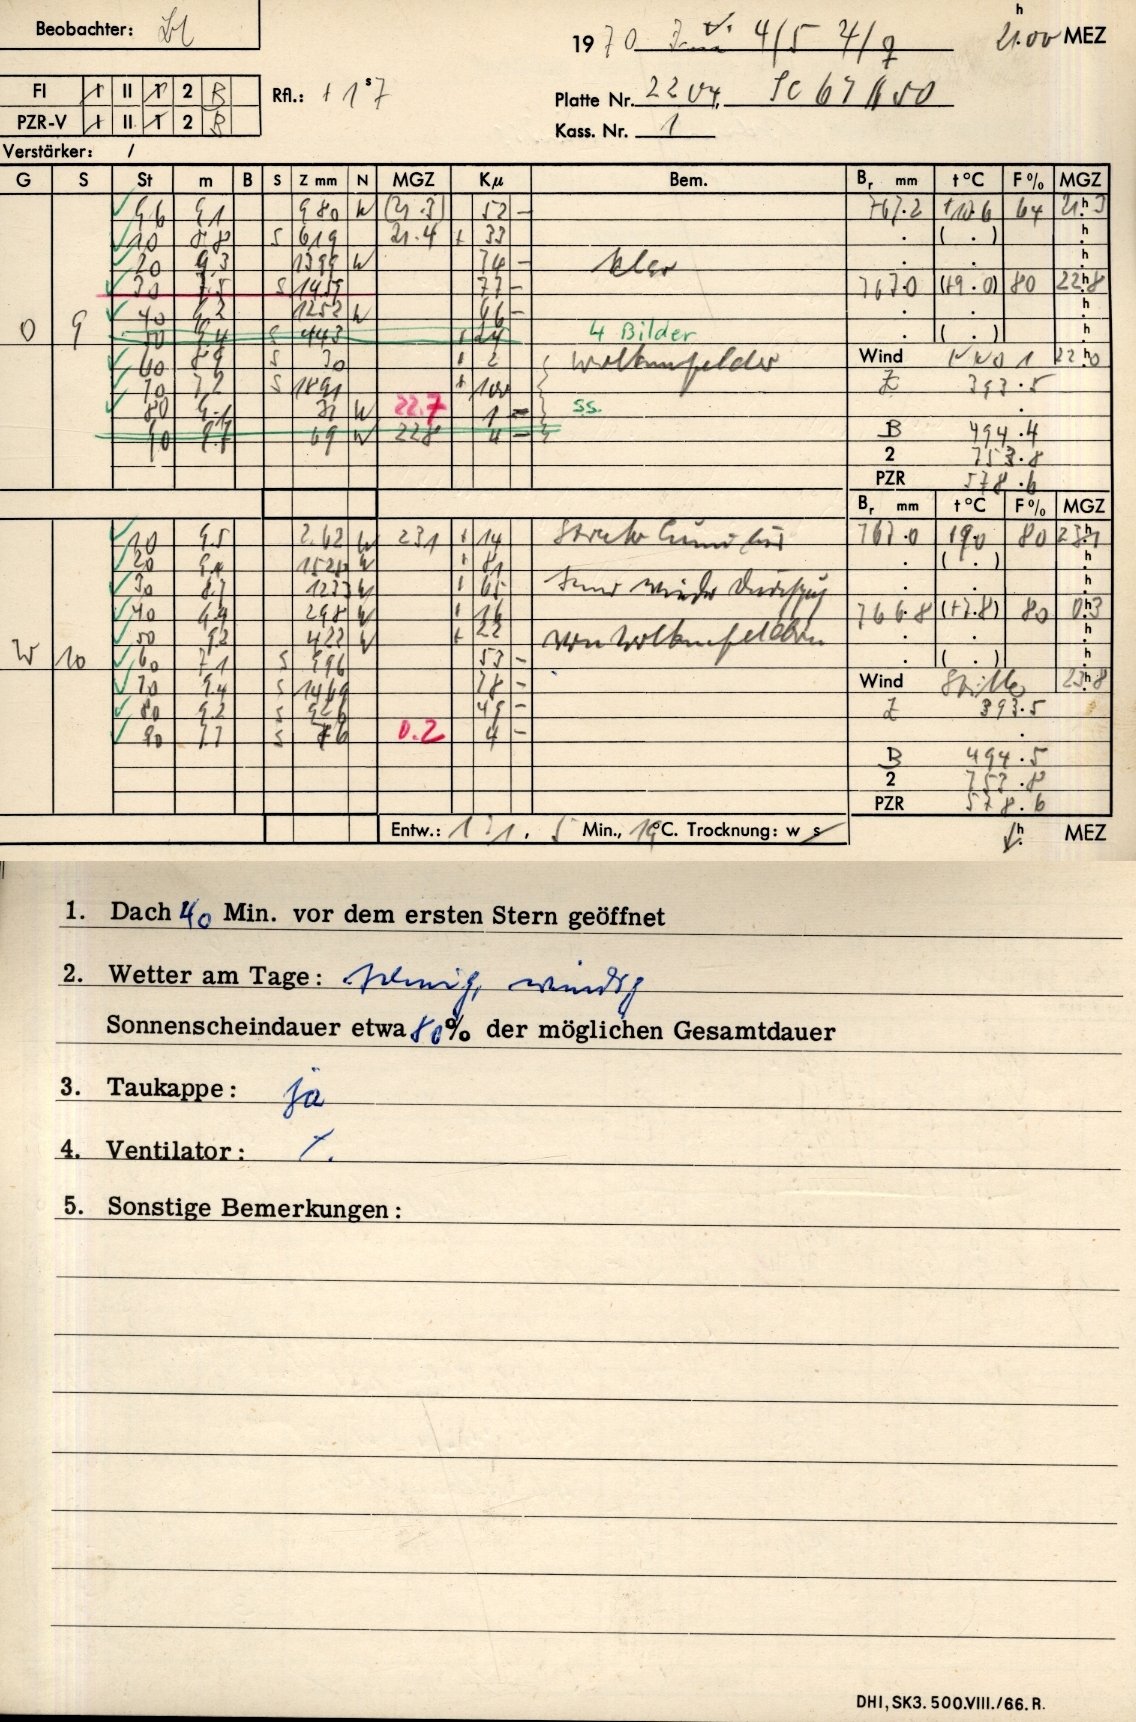 Beobachter: Bl
1970 Juni 4/5 4/9 21.00 h MEZ
FI I II 1 2 B Rfl.: +1 s 7
Platte Nr. 2204, SC 67 50
PZR-V I II 1 2 B
Kass. Nr. 1
Verstärker: /
G S St m B S Z mm N MGZ Kμ Bem. Br mm t °C F % MGZ
96 9.1 980 W (21.3) 52 - 767.2 +10.6 64 21.h3
10 8.8 S 619 21.4 + 33 ( . ) h
20 9.3 1399 W 74 - klar h
30 7.5 S 1459 77 - 767.0 (+9.0) 80 22.h8
40 9.2 1252 W 66 - h
O 9 50 9.4 S 443 + 24 4 Bilder ( . ) h
60 8.9 S 30 + 2 Wolkenfelder Wind NNO 1 22.h0
70 7.2 S 1891 + 100 Z 393.5
80 9.1 31 W 22.7 1 - ss.
90 8.7 69 W 22.8 4 - B 494.4
2 753.8
PZR 578.6
Br mm t °C F % MGZ
10 9.5 262 W 23.1 + 14 767.0 +9.0 80 23.h1
20 1524 W + 81 ( . ) h
30 8.7 1233 W + 65 wieder Durchzug h
40 9.9 298 W + 16 766.8 (+7.8) 80 0.h3
50 9.2 422 W + 22 von Wolkenfeldern h
W 10 60 7.1 S 996 53 - ( . ) h
70 9.4 S 1469 78 - Wind Stille 23.h8
80 9.2 S 926 49 - Z 393.5
90 7.7 S 76 0.2 4 -
B 494.5
2 753.8
PZR 578.6
Entw.: 1:1, 5 Min., 19°C. Trocknung: w s h MEZ
1. Dach 40 Min. vor dem ersten Stern geöffnet
2. Wetter am Tage: sonnig, windig
Sonnenscheindauer etwa 80% der möglichen Gesamtdauer
3. Taukappe: ja
4. Ventilator: /.
5. Sonstige Bemerkungen:
DHI, SK3. 500.VIII./66. R.